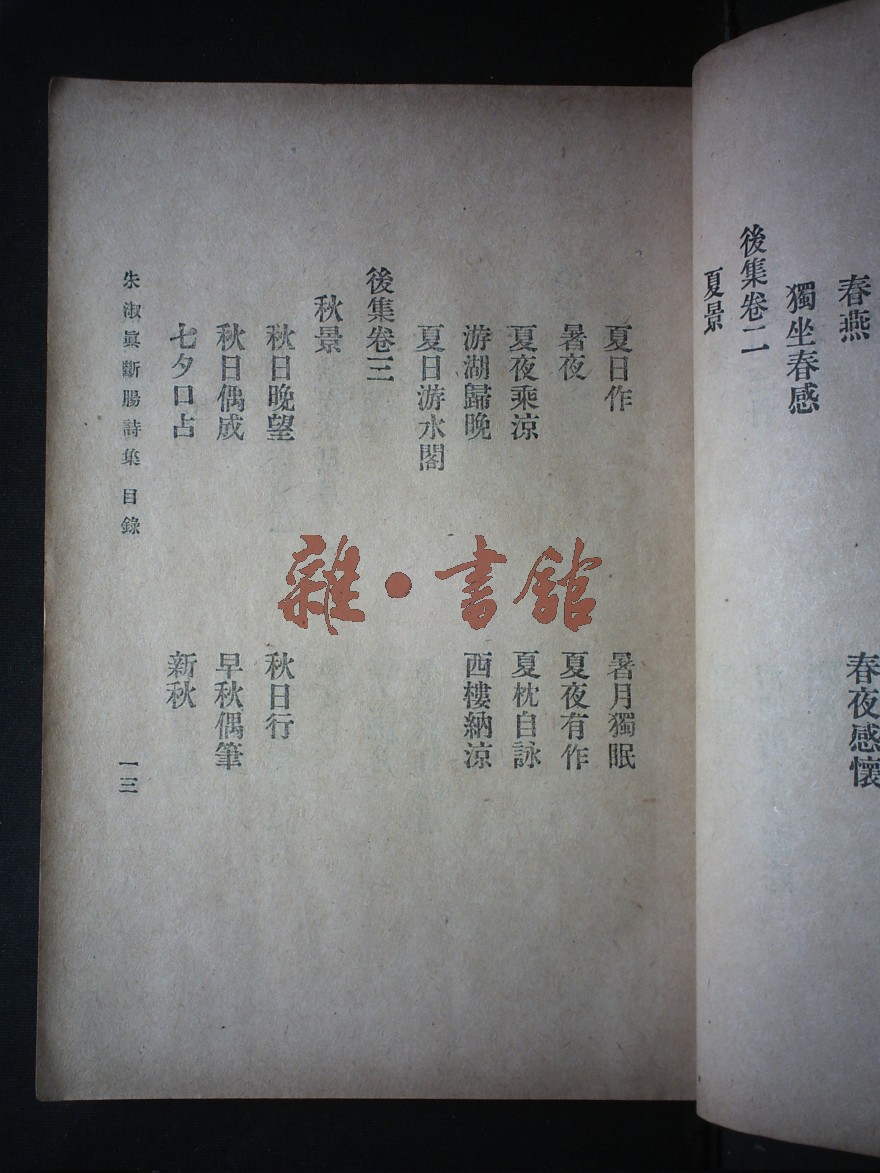 春燕
春夜感懷
獨坐春感
後集卷二
夏景
夏日作
暑月獨眠
暑夜
夏夜有作
夏夜乘涼
夏枕自詠
游湖歸晚
西樓納涼
夏日游水閣
後集卷三
秋景
秋日晚望
秋日行
秋日偶成
早秋偶筆
七夕口占
新秋
朱淑眞斷腸詩集 目錄
一三
雜·書館